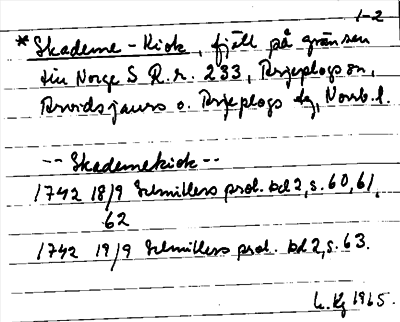 1-2
*Skademe-Kiok, fjäll på gränsen
till Norge S R.r. 233, Arjeplogs sn,
Arvidsjaurs o. Arjeplogs tg, Norrb. l.
-- Skademekiok --
1742 18/9 Schnitlers prot. bd 2, s. 60, 61,
62
1742 19/9 Schnitlers prot. bd 2, s. 63.
1965.